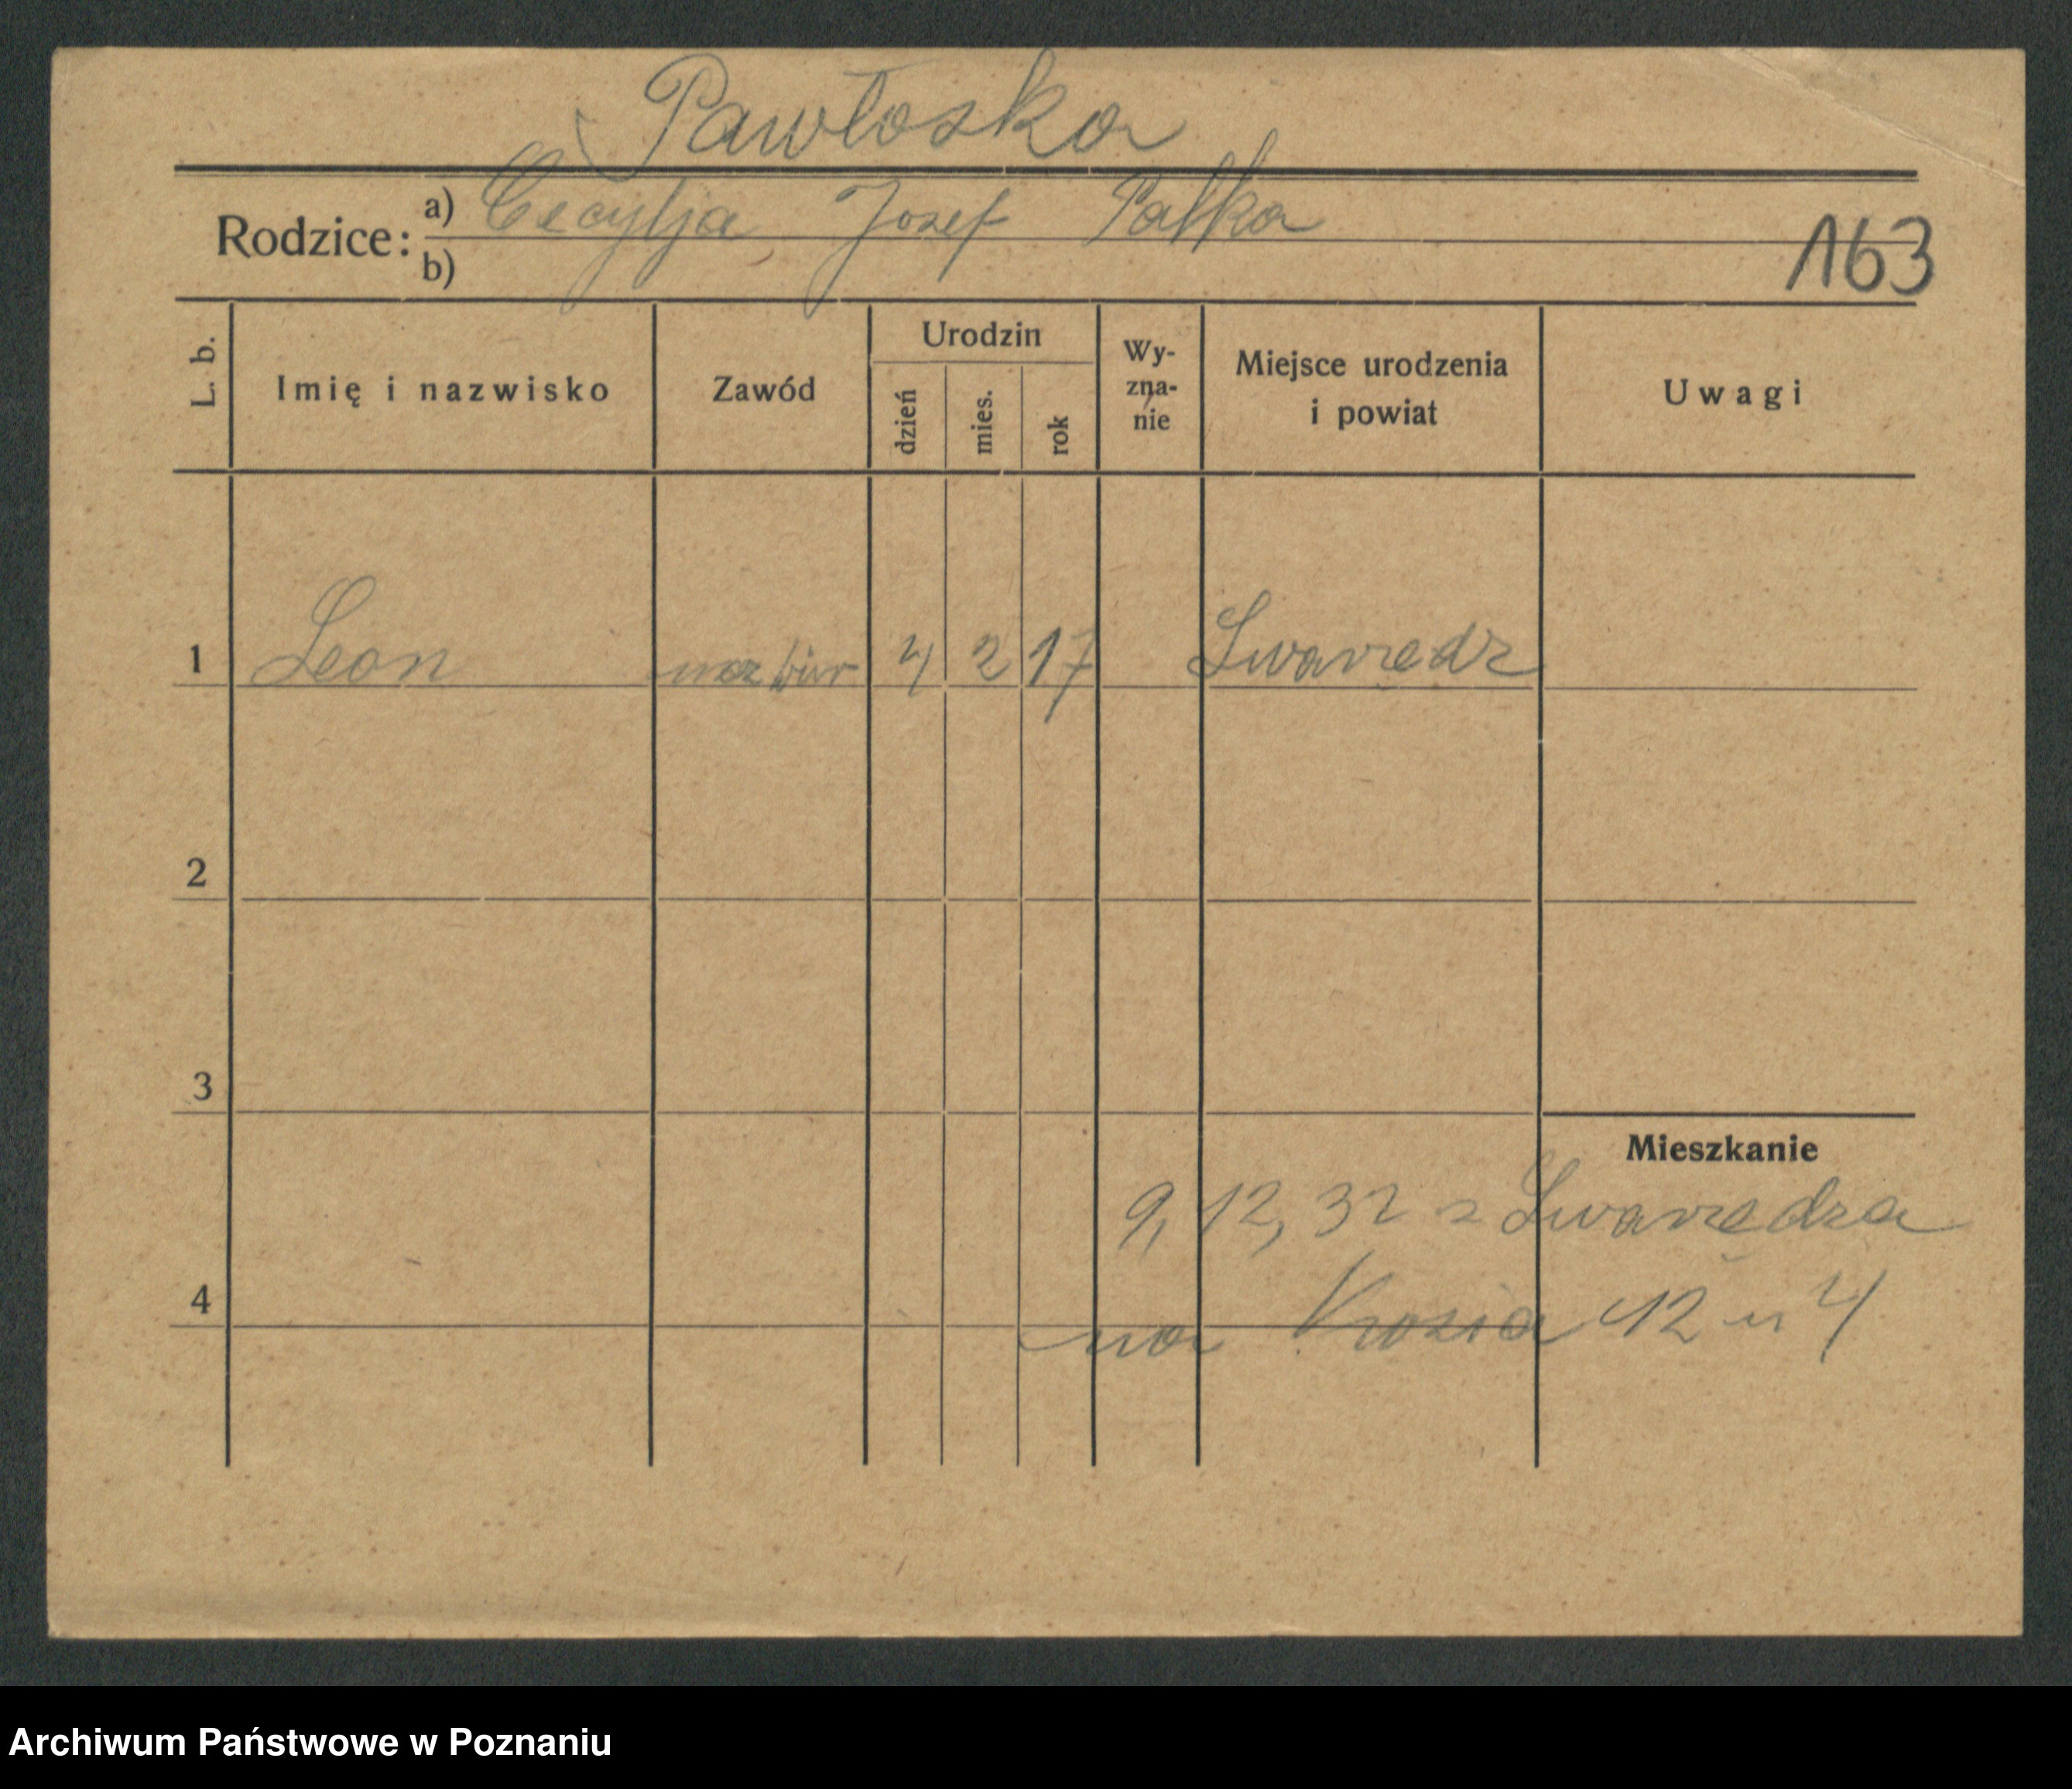 Pawłoska
Rodzice: a) Cecylja Josef Pałka
b)
163
L. b. Imię i nazwisko Zawód Urodzin dzień mies. rok Wy-zna-nie Miejsce urodzenia i powiat Uwagi
1 Leon 4 2 17 Swarzedz
2
3
Mieszkanie
9, 12, 32 z Swarzędza
4
na 12 m 4
Archiwum Państwowe w Poznaniu